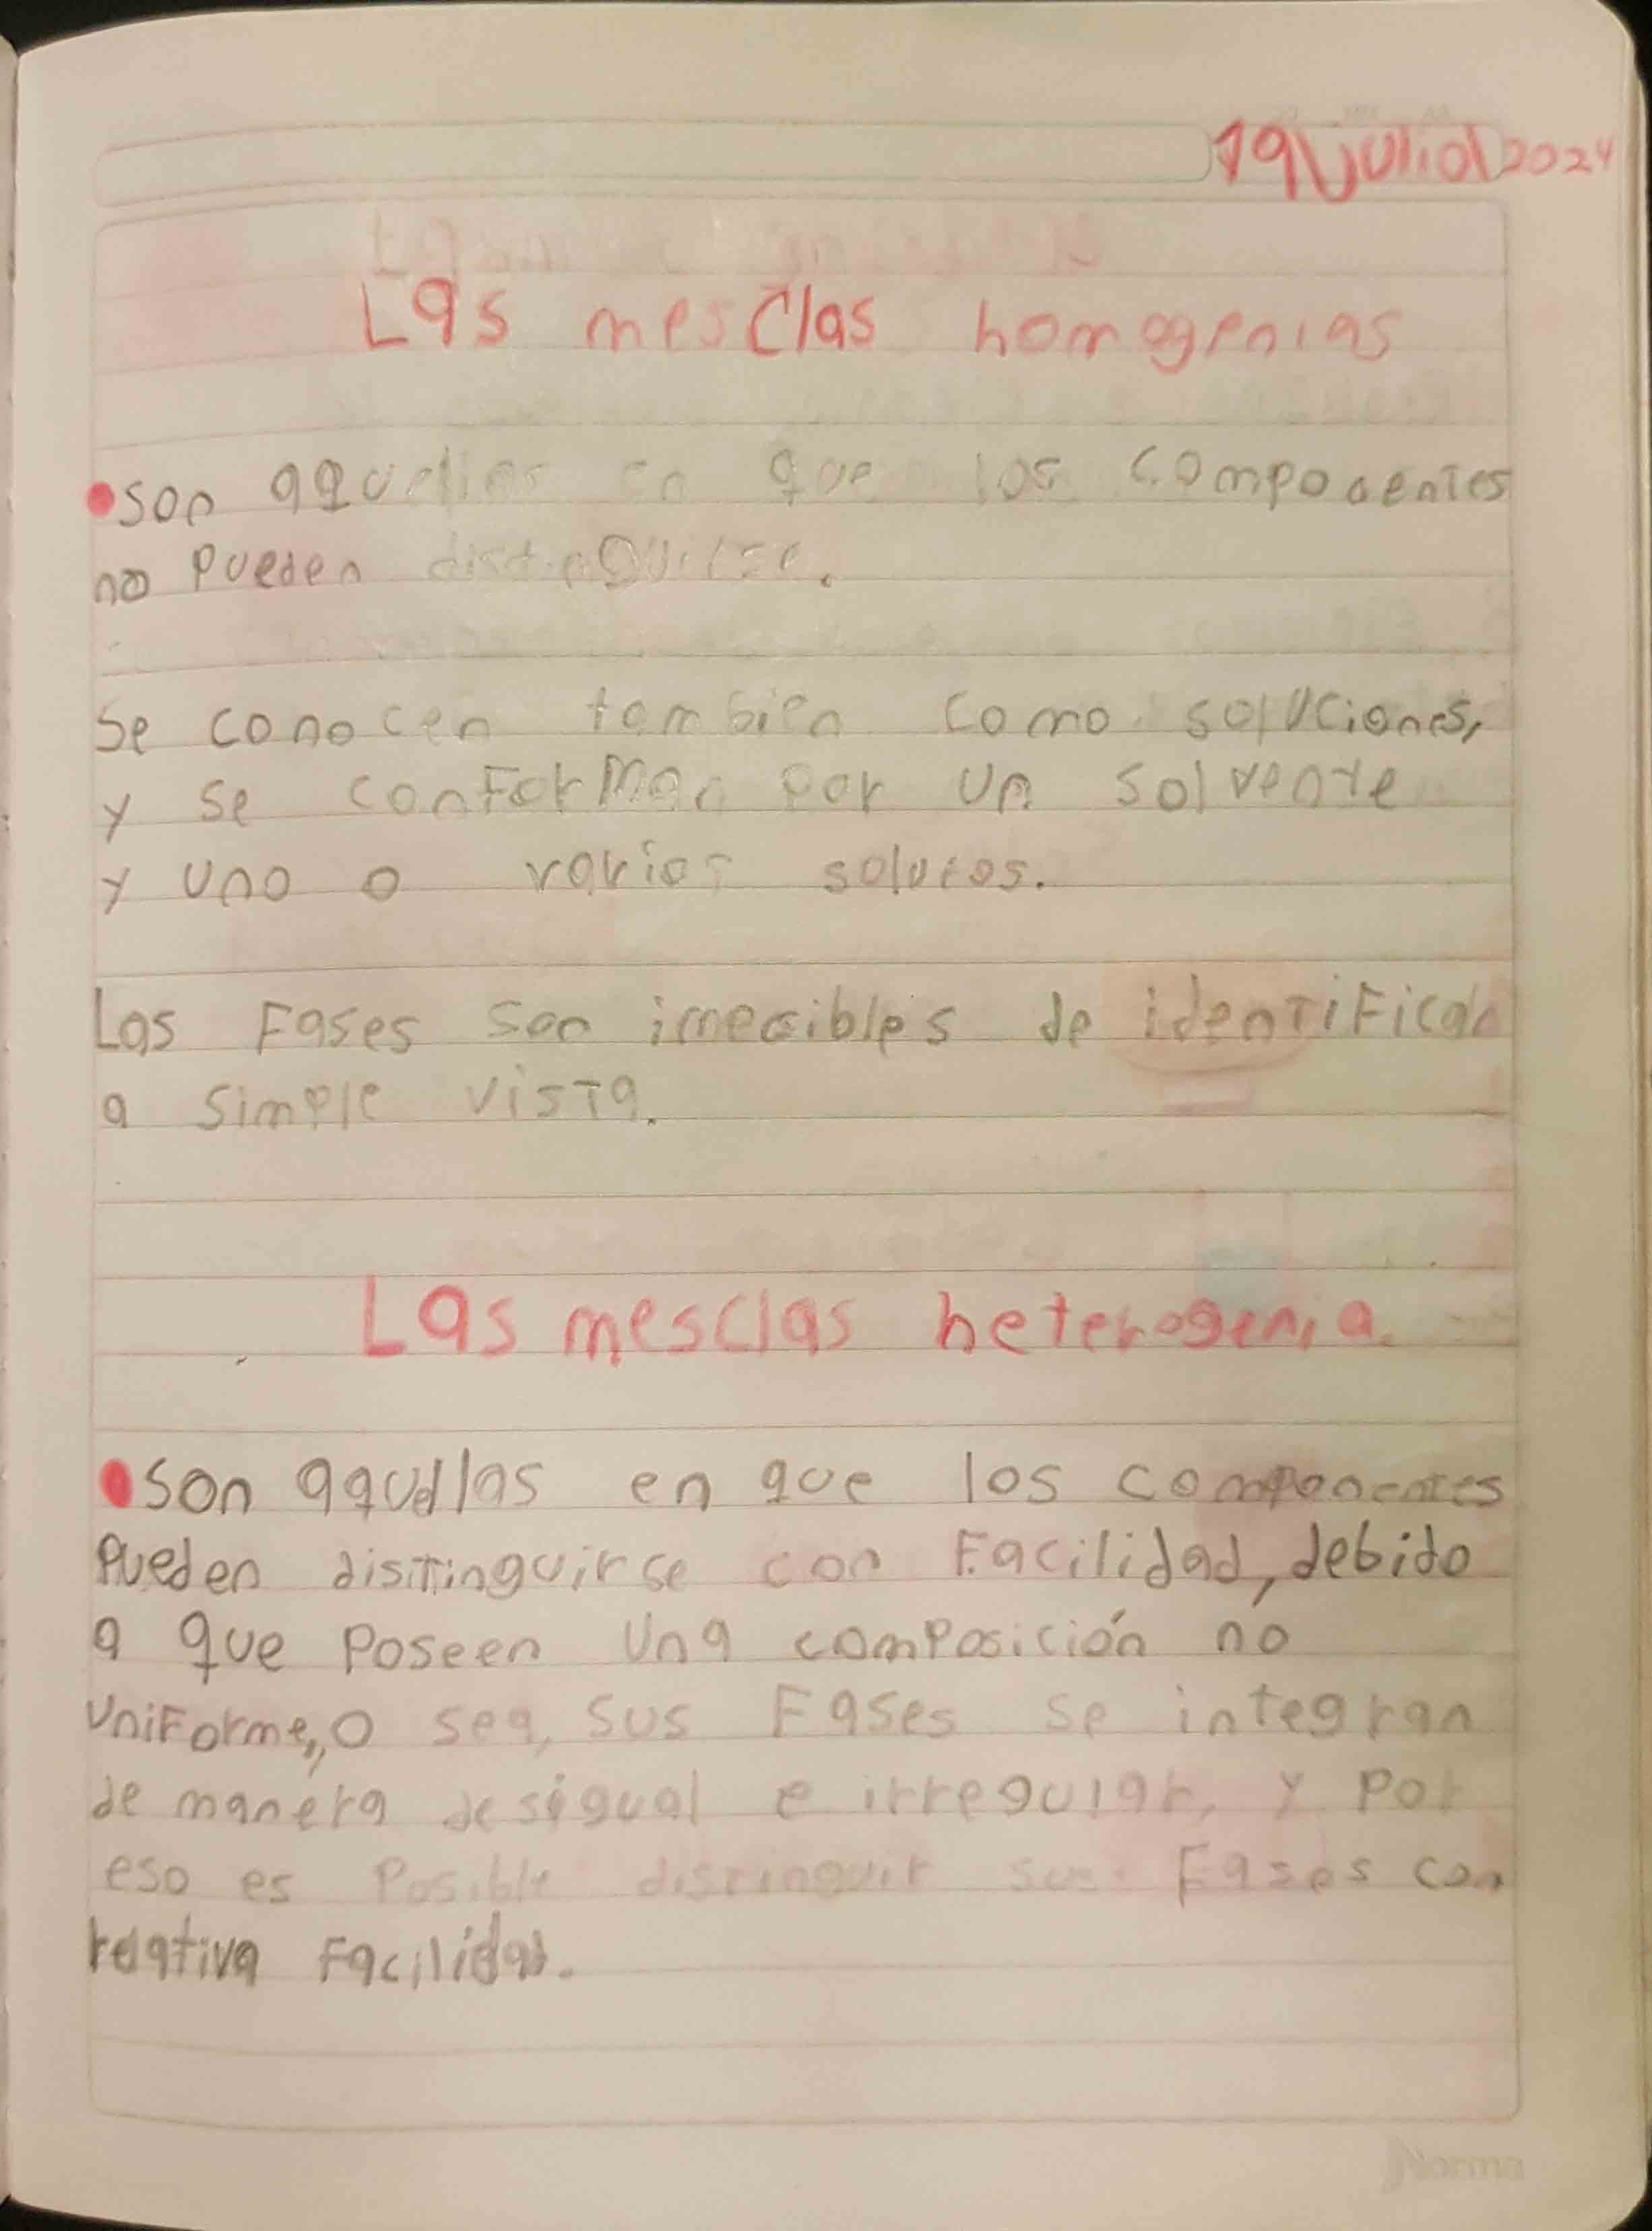 19\julio\2024
Las mesclas homogenias
•son aquellas en que los componentes
no pueden distinguirse.
Se conocen tambien como soluciones,
y se conforman por un solvente
y uno o varios solutos.
Las Fases son de identificar
a simple vista.
Las mesclas heterogenia.
•son aquellas en que los componentes
Pueden disitinguirse con Facilidad, debido
a que poseen una composición no
uniforme,, o sea, sus Fases se integran
de manera desigual e irregular, y por
eso es Posible distinguir sus Fases con
relativa Facilidad.
Norma